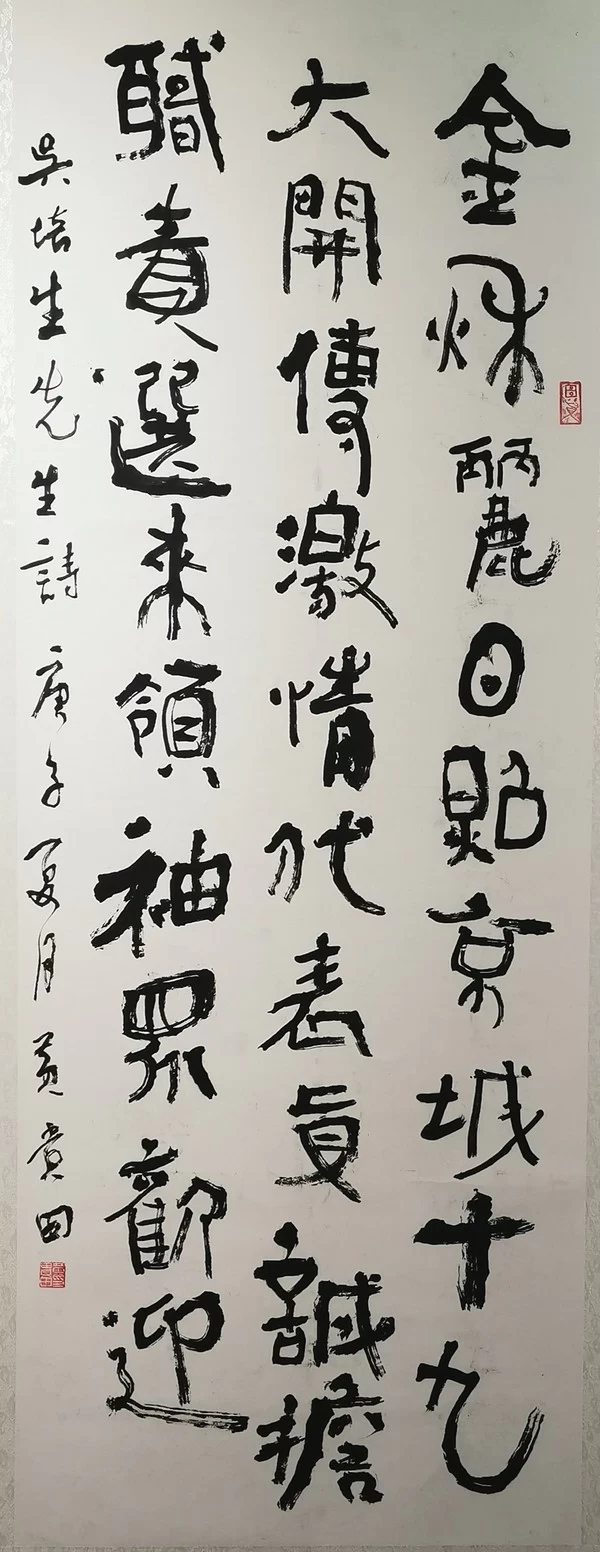 金秋麗日點京城十九
大開傳激情代表真誠擔
職責選來領袖眾歡迎
吳培生先生詩庚子夏月黃田